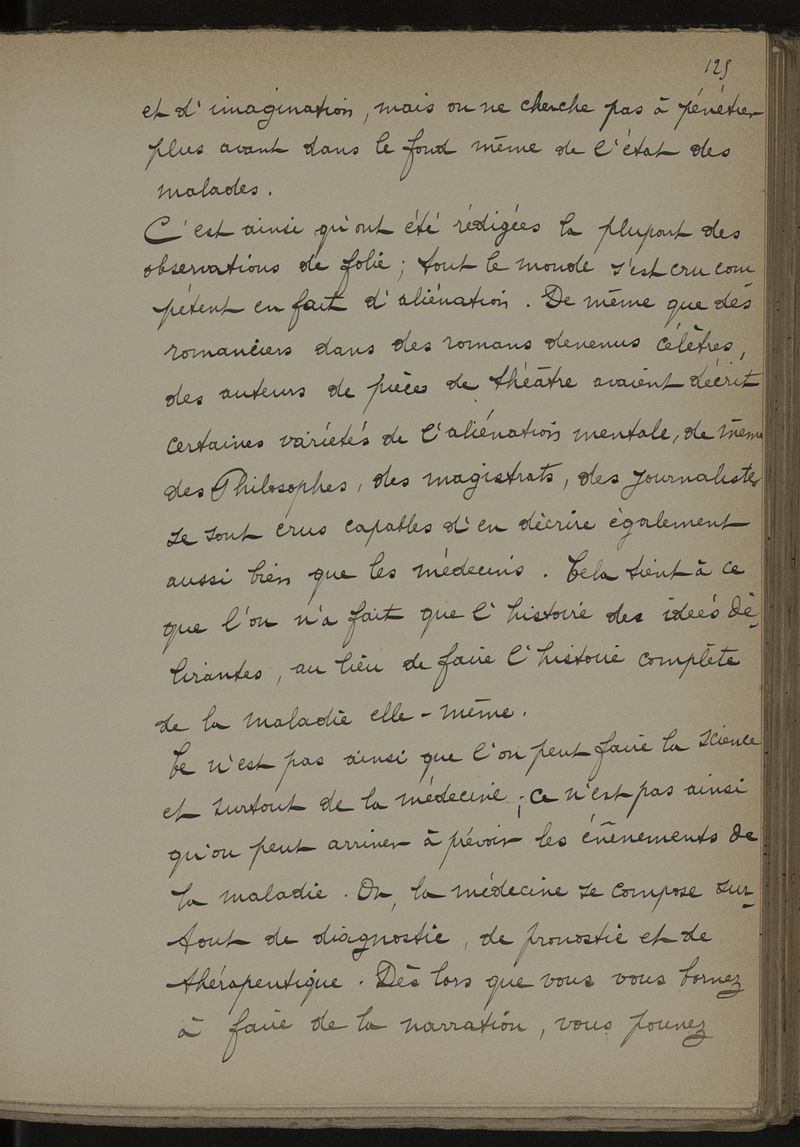 125
et d'imagination, mais on ne cherche pas à pénétrer
plus avant dans le fond même de l'état des
malades.
C'est ainsi qu'ont été rédigées la plupart des
observations de folie ; tout le monde s'est cru com
pétent en fait d'aliénation. De même que des
romanciers dans des romans devenus célèbres,
des auteurs de pièces de théâtre avaient décrit
certaines variétés de l'aliénation mentale, de même
des Philosophes, des magistrats, des journalistes
se sont crus capables d'en décrire également
aussi bien que les médecins. Cela tient à ce
que l'on n'a fait que l'histoire des idées dé-
lirantes, au lieu de faire l'histoire complète
de la maladie elle-même.
Ce n'est pas ainsi que l'on peut faire la science
et surtout de la médecine ; ce n'est pas ainsi
qu'on peut arriver à prévoir les évènements de
la maladie. Or, la médecine se compose sur-
tout de diagnostic, de pronostic et de
thérapeutique. Dès lors que vous vous bornez
à faire de la narration, vous pouvez